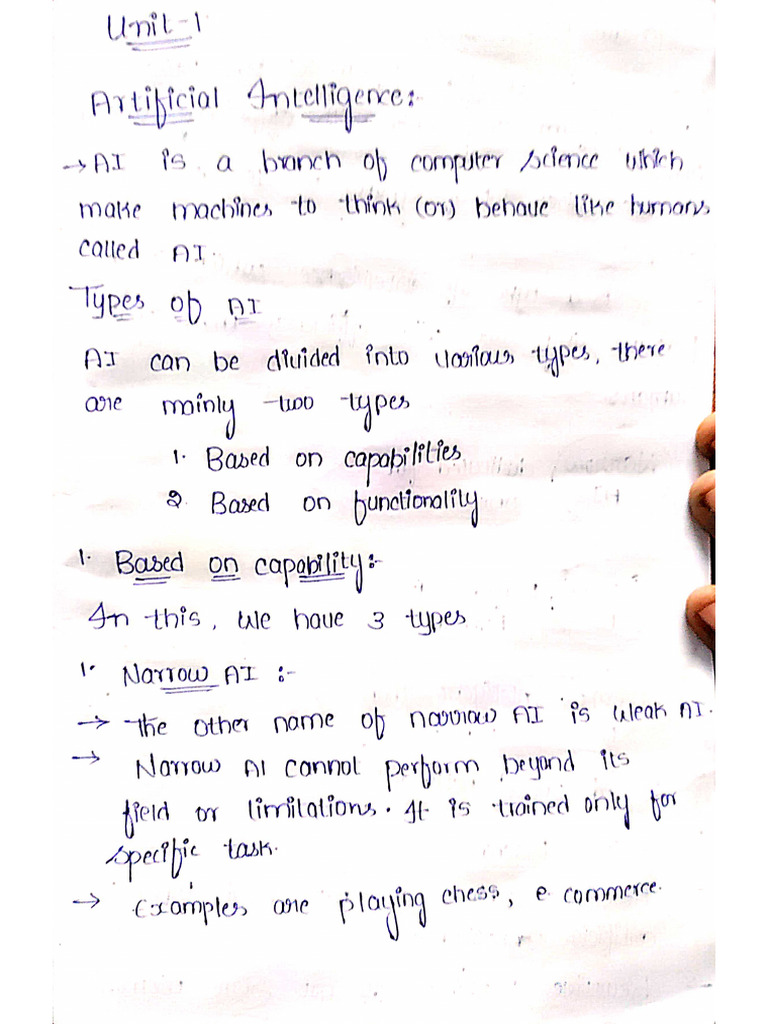 Unit-1
Artificial Intelligence:-
→ AI is a branch of computer science which
make machines to think (or) behave like humans
called AI.
Types of AI
AI can be divided into various types, there
are mainly two types
1. Based on capabilities
2. Based on functionality
1. Based on capability:-
In this, we have 3 types
1. Narrow AI :-
→ the other name of narrow AI is weak AI.
→ Narrow AI cannot perform beyond its
field or limitations. It is trained only for
specific task.
→ Examples are playing chess, e commerce.